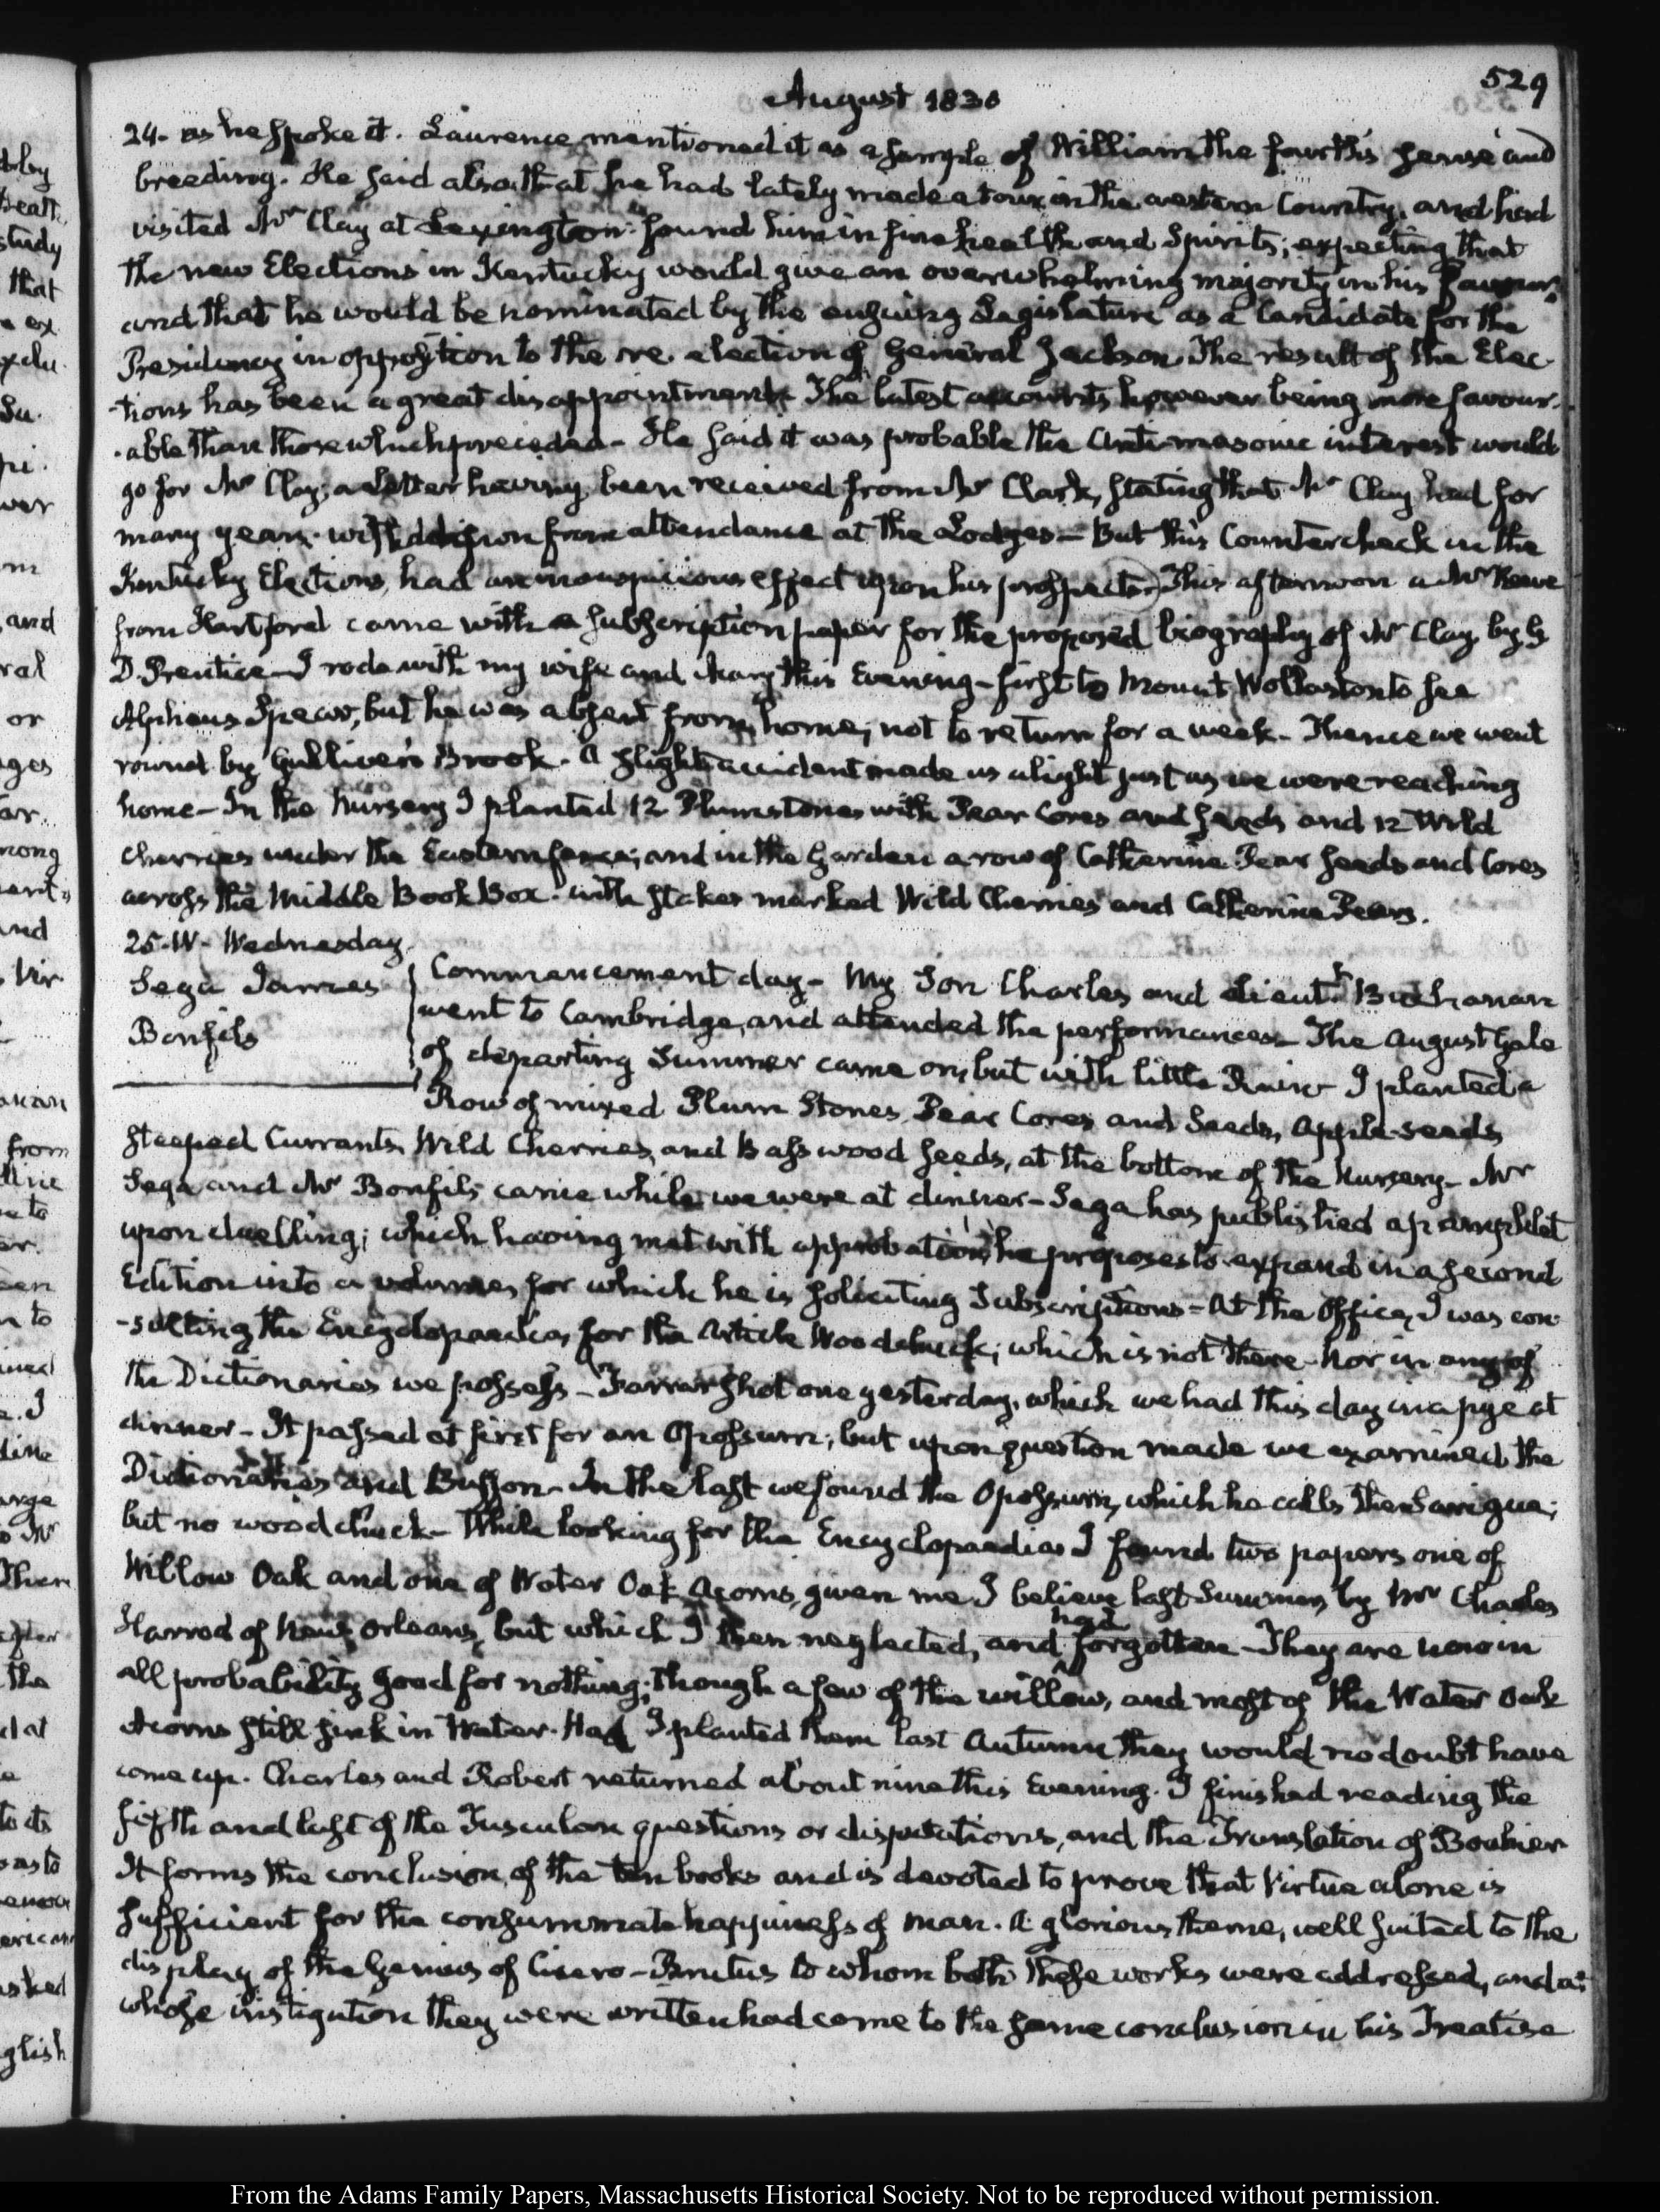 529
August 1830
24. as he spoke it. Laurence mentioned it as a sample of William the fourth's sense and
breeding. He said also that he had lately made a tour in the western Country, and had
visited Mr Clay at Lexington: found him in fine health and Spirits; expecting that
the new Elections in Kentucky would give an overwhelming majority in his favour;
and that he would be nominated by the ensuing Legislature as a Candidate for the
Presidency in opposition to the re-election of General Jackson. The result of the Elec-
-tions has been a great disappointment. The latest accounts however being more favour-
-able than those which preceded- He said it was probable the Anti-masonic interest would
go for Mr Clay; a letter having been received from Mr Clark, stating that Mr Clay had for
many years withdrawn from attendance at the Lodges- But this Countercheck in the
Kentucky Elections, had an inauspicious effect upon his prospects. This afternoon a Mr
from Hartford came with a subscription paper for the proposed biography of Mr Clay by G
D. Prentice- I rode with my wife and Mary this Evening- first to Mount Wollaston to see
Alpheus Spear, but he was absent from home; not to return for a week- Thence we went
round by Gulliver's Brook. A slight accident made us alight just as we were reaching
home- In the Nursery I planted 12 Plumstones with Pear Cores and seeds and 12 Wild
Cherries under the Eastern fence; and in the Garden a row of Catherine Pear seeds and Cores
across the Middle Book Box. with stakes marked Wild Cherries and Catherine Pears.
25. W. Wednesday.
Sega James
Bonfils
Commencement day- My Son Charles and Lieutt Buchanan
went to Cambridge, and attended the performances- The August Gale
of departing Summer came on, but with little Rain- I planted a
Row of mixed Plum Stones, Pear Cores and Seeds, Apple-seeds
steeped Currants, Wild Cherries, and Basswood seeds, at the bottom of the Nursery- Mr
Sega and Mr Bonfils came while we were at dinner- Sega has published a pamphlet
upon duelling; which having met with approbation, he proposes to expand in a second
Edition into a volume, for which he is soliciting Subscriptions- At the Office, I was con-
-sulting the Encyclopaedia, for the Article Woodchuck; which is not there- Nor in any of
the Dictionaries we possess- Farrar shot one yesterday, which we had this day in a pye at
dinner- It passed at first for an Opossum; but upon question made we examined the
Dictionaries and Buffon- In the last we found the Opossum, which he calls the Sarigue;
but no woodchuck- While looking for the Encyclopaedia I found two papers one of
Willow Oak and one of Water Oak Acorns, given me I believe last Summer, by Mr Charles
Harrod of New Orleans, but which I then neglected, and had forgotten- They are now in
all probability good for nothing; though a few of the willow, and most of the Water Oak
Acorns still sink in Water. Had I planted them last Autumn they would no doubt have
come up. Charles and Robert returned about nine this Evening. I finished reading the
fifth and last of the Tusculan questions or disputations, and the Translation of Bouhier
It forms the conclusion of the ten books and is devoted to prove that Virtue alone is
sufficient for the consummate happiness of man. A glorious theme, well suited to the
display of the Genius of Cicero- Brutus to whom both these works were addressed, and at
whose instigation they were written had come to the same conclusion in his Treatise
From the Adams Family Papers, Massachusetts Historical Society. Not to be reproduced without permission.